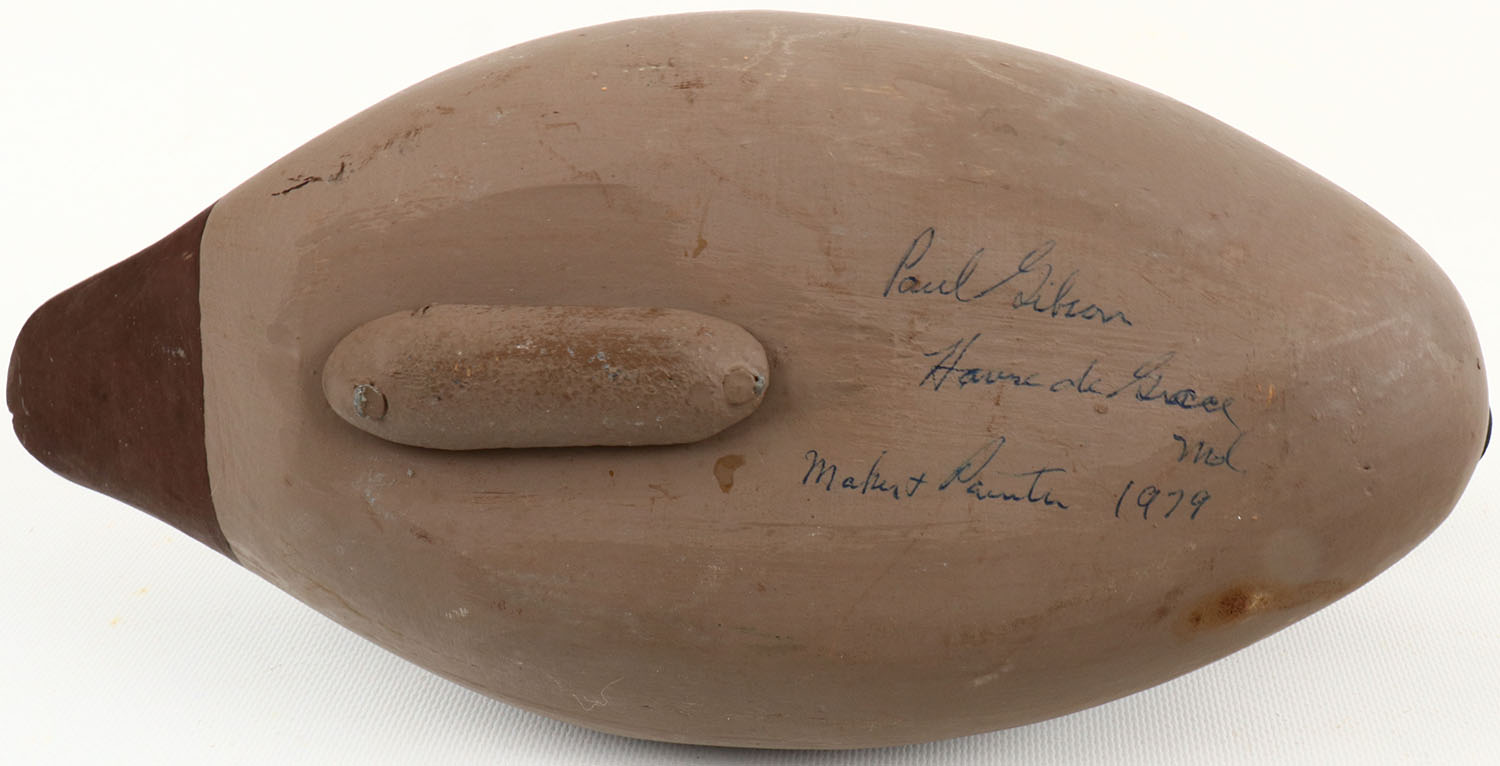 Paul Gibson
Havre de Grace
Md.
Maker + Painter 1979